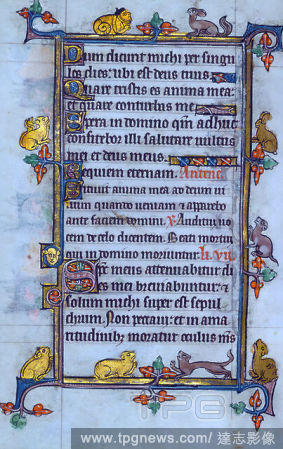 Dum dicunt michi per singu
los dies: ubi est deus tuus
Quare tristis es anima mea:
et quare conturbas me
Spera in domino qm adhuc
confitebor illi salutare vultus
mei et deus meus
Requiem eternam. Antene
Sitivit anima mea ad deum vi
uum quando veniam et apparebo
ante faciem domini. V. Audivi vo
cem de celo dicentem. Beati mortui
qui in domino moriuntur. li. vii
Spe meus attenuabitur di
es mei breviabuntur: et
solum michi super est sepul
chrum. Non peccavi: et in ama
ritudinibus moratur oculus ms
TPG
www.tpgnews.com/達志影像